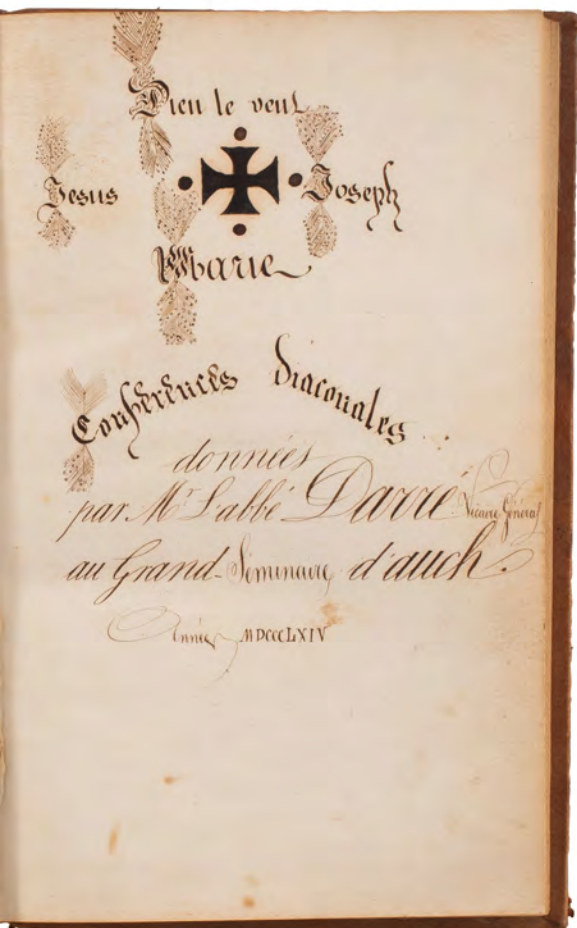 Dieu le veut
Jesus Joseph
Marie
Conférences Diaconales
données
par Mr L'abbé Darré Vicaire Général
au Grand-Séminaire d'auch.
Année MDCCCLXIV